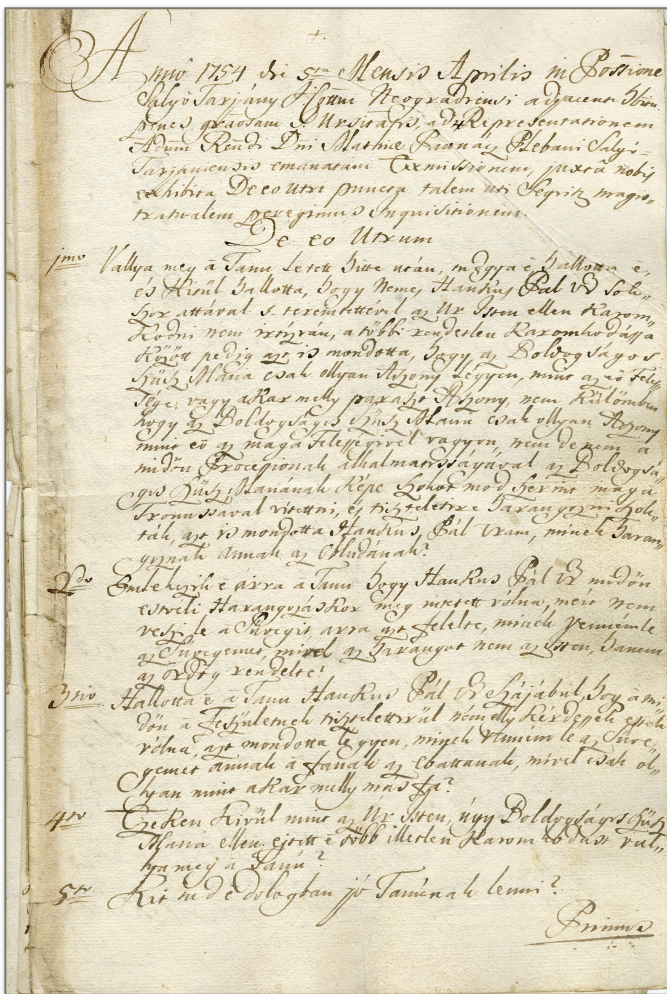 Anno 1754 die 5ta Mensis Aprilis in Possione
Salgó Tarjány I. Cottui Neogradiensi adjacenti
penes ad Representationem
Adum Rendi Dni Mathiæ Plebani Salgó-
Tarjaniensis emanatam Exmissionem, juxta nobis
exhibita De eo utri puncta talem uti Seqrik magis-
tratualem peregimus Inquisitionem.
De eo Utrum
1mo Vallya meg à Tanu letett hitte után, tudgya é, hallotta é,
és Kitül hallotta, hogy Nemes Hankus Pál Ur
attával s teremttével az Ur Isten ellen Károm-
Kodni nem a többi rendetlen Káromkodássa
Között pedig azt is mondotta, hogy az Boldogságos
Szüz Mária csak ollyan Aszony légyen, mint az eö Fele-
sége, vagy akár melly paraszt Aszony, nem Külömben
hogy az Boldogságos Szüz Maria csak ollyan Aszony
mint eö az maga Felesegivel vagyon, nem de nem a
midön Processionak alkalmatosságával az Boldogsá-
gos Szüz Mariának Képe szokot mod szerint maga
Tronussával vitettni, és tiszteletire harangozni szok-
ták, azt is mondotta Hankus Pál Uram, minek haran-
goznak annak az Obludának?
2do Emlekezik é arra a Tanu hogy Hankus Pál Ur midön
estvéli Harangozáskor meg intetett volna, mért nem
veszi le a Süvegit arra azt felelte, minek vennem le
az Süvegemet, mivel az harangot nem az Isten, hanem
az ördög rendelte?
3tio Hallotta é a Tanu Hankus Pál Ur szájábul, hogy a mi-
dön a Feszületnek tiszteletirül némelly Kérdések
volna, azt mondotta légyen, minek vennem le az Süve-
gemet annak a fának az ebattának, mivel csak ol-
lyan mint akár melly más fa?
4to Ezeken Kivül mint az Ur Isten, úgy Boldogságos Szüz
Maria ellen ejtett é több illetlen Káromkodást val-
lya meg à Tanu?
5to Kit tud é dologban jó Tanúnak lenni?
Primus